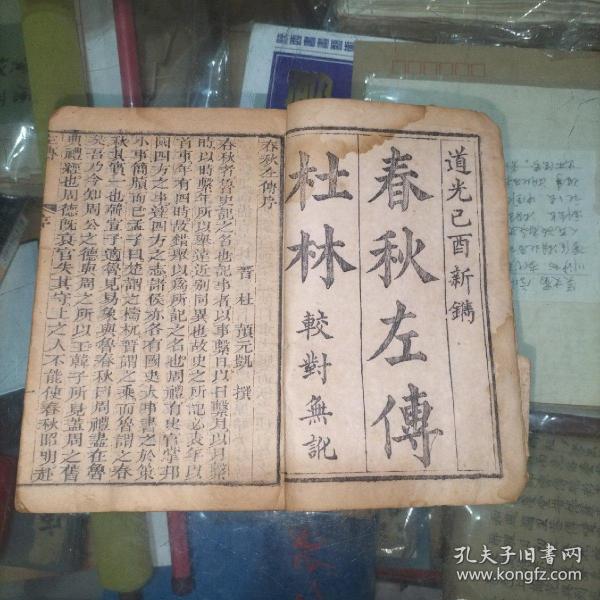 道光己酉新鐫
春秋左傳
杜林
較對無訛
春秋左傳序
晋 杜 預元凱 撰
春秋者魯史記之名也記事者以事繫日以日繫月以月繫
時以時繫年所以紀遠近別同異也故史之所記必表年以
首事年有四時故錯舉以爲所記之名也周禮有史官掌邦
國四方之事達四方之志諸侯亦各有國史大事書之於策
小事簡牘而已孟子曰楚謂之檮杌晉謂之乘而魯謂之春
秋其實一也韓宣子適魯見易象與魯春秋曰周禮盡在魯
矣吾乃今知周公之德與周之所以王韓子所見蓋周之舊
典禮經也周德既衰官失其守上之人不能使春秋昭明赴
孔夫子旧书网
www.kongfz.com